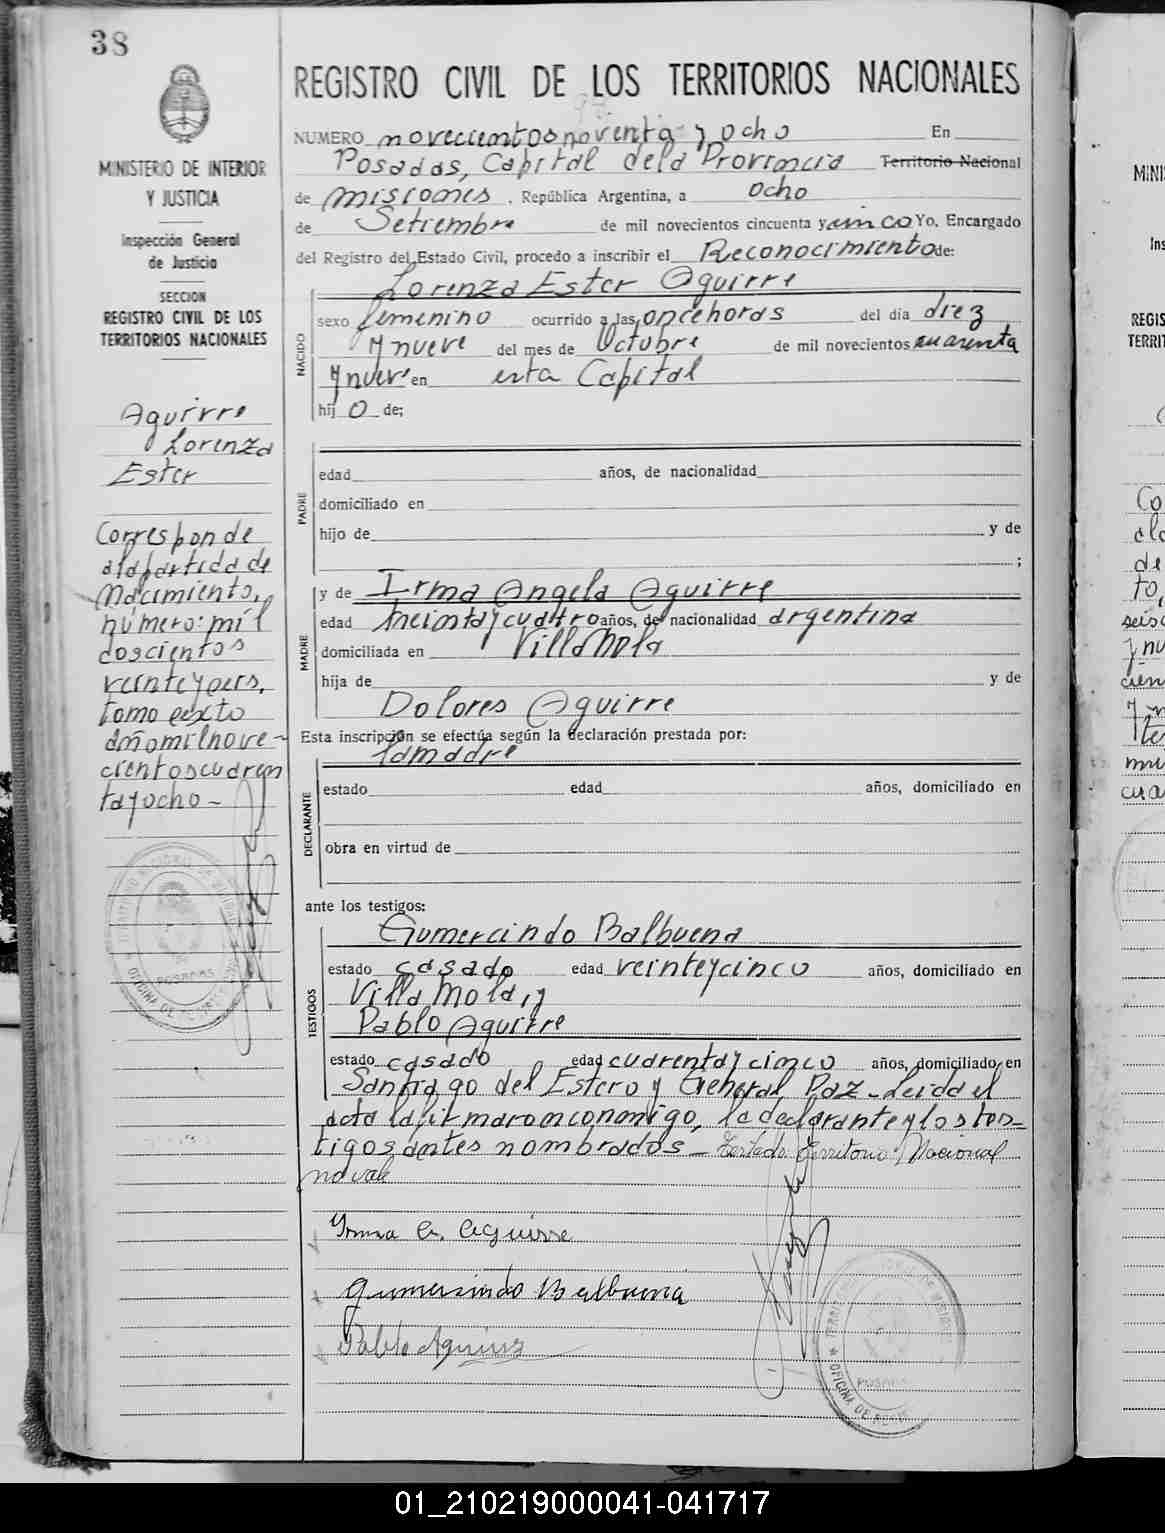 38
MINISTERIO DE INTERIOR
Y JUSTICIA
Inspección General
de Justicia
SECCION
REGISTRO CIVIL DE LOS
TERRITORIOS NACIONALES
Aguirre
Lorenza
Ester
Corresponde
a la partida de
Nacimiento,
número: mil
doscientos
veinte y seis,
tomo sexto
año mil nove-
cientos cuaren
ta y ocho -
REGISTRO CIVIL DE LOS TERRITORIOS NACIONALES
NUMERO novecientos noventa y ocho En
Posadas, Capital de la Provincia Territorio Nacional
de Misiones. República Argentina, a ocho
de Setiembre de mil novecientos cincuenta y cinco Yo, Encargado
del Registro del Estado Civil, procedo a inscribir el Reconocimiento de:
Lorenza Ester Aguirre
NACIDO
sexo femenino ocurrido a las once horas del día diez
y nueve del mes de Octubre de mil novecientos cuarenta
y nueve en esta Capital
hij o de;
PADRE
edad años, de nacionalidad
domiciliado en
hijo de y de
;
MADRE
y de Irma Angela Aguirre
edad treinta y cuatro años, de nacionalidad argentina
domiciliada en Villa Mola
hija de y de
Dolores Aguirre
Esta inscripción se efectúa según la declaración prestada por:
la madre
DECLARANTE
estado edad años, domiciliado en
obra en virtud de
ante los testigos:
TESTIGOS
Gumercindo Balbuena
estado casado edad veinte y cinco años, domiciliado en
Villa Mola, y
Pablo Aguirre
estado casado edad cuarenta y cinco años, domiciliado en
Santiago del Estero y General Paz - Leida el
acta la firmaron conmigo, la declarante y los tes-
tigos antes nombrados - Testado: Territorio Nacional
no vale
Irma A. Aguirre
Gumersindo Balbuena
Pablo Aguirre
OFICINA DE
POSADAS
01_210219000041-041717